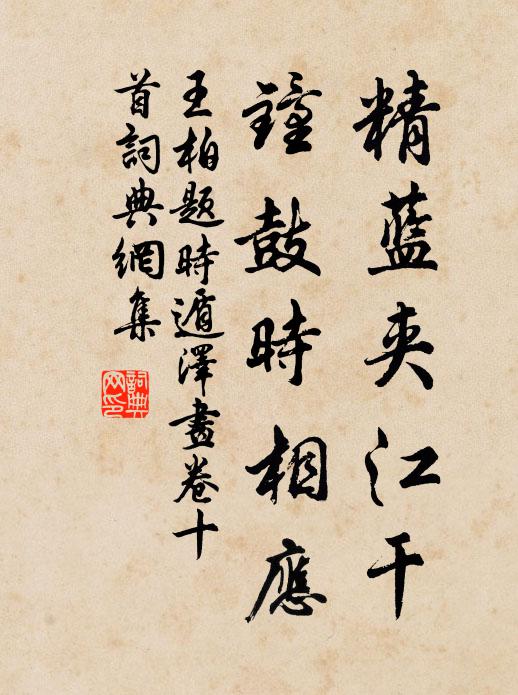 精藍夾江干
鐘鼓時相應
王柏題時遁澤畫卷十
首詞典網集
詞典
网印